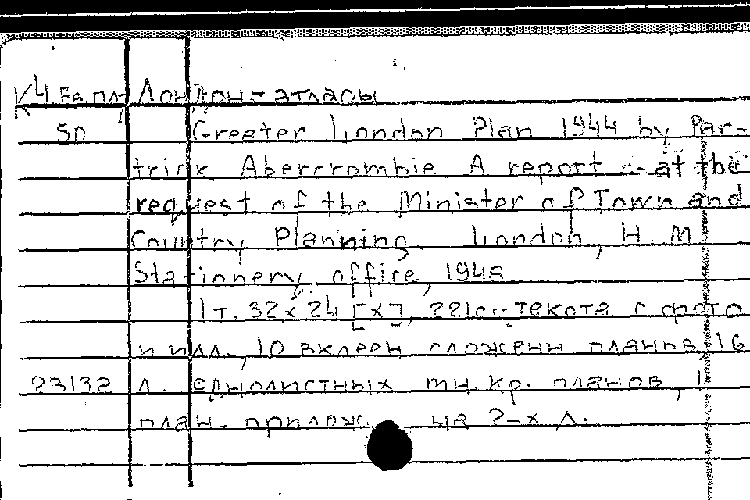 К4.Ев.пл Лондон – атласы
5D Greater London Plan 1944 by Par-
trick Abercrombie A report at the
request of the Minister of Town and
Country Planning. London, H. M.
Stationery office, 1945
1 т. 32 x 24 [x], 221 с. текста с фото
и илл., 10 вклеен сложенн планов, 16
23132 л. еднолистных мн. кр. планов, 1
план. прилож. на 2-х л.